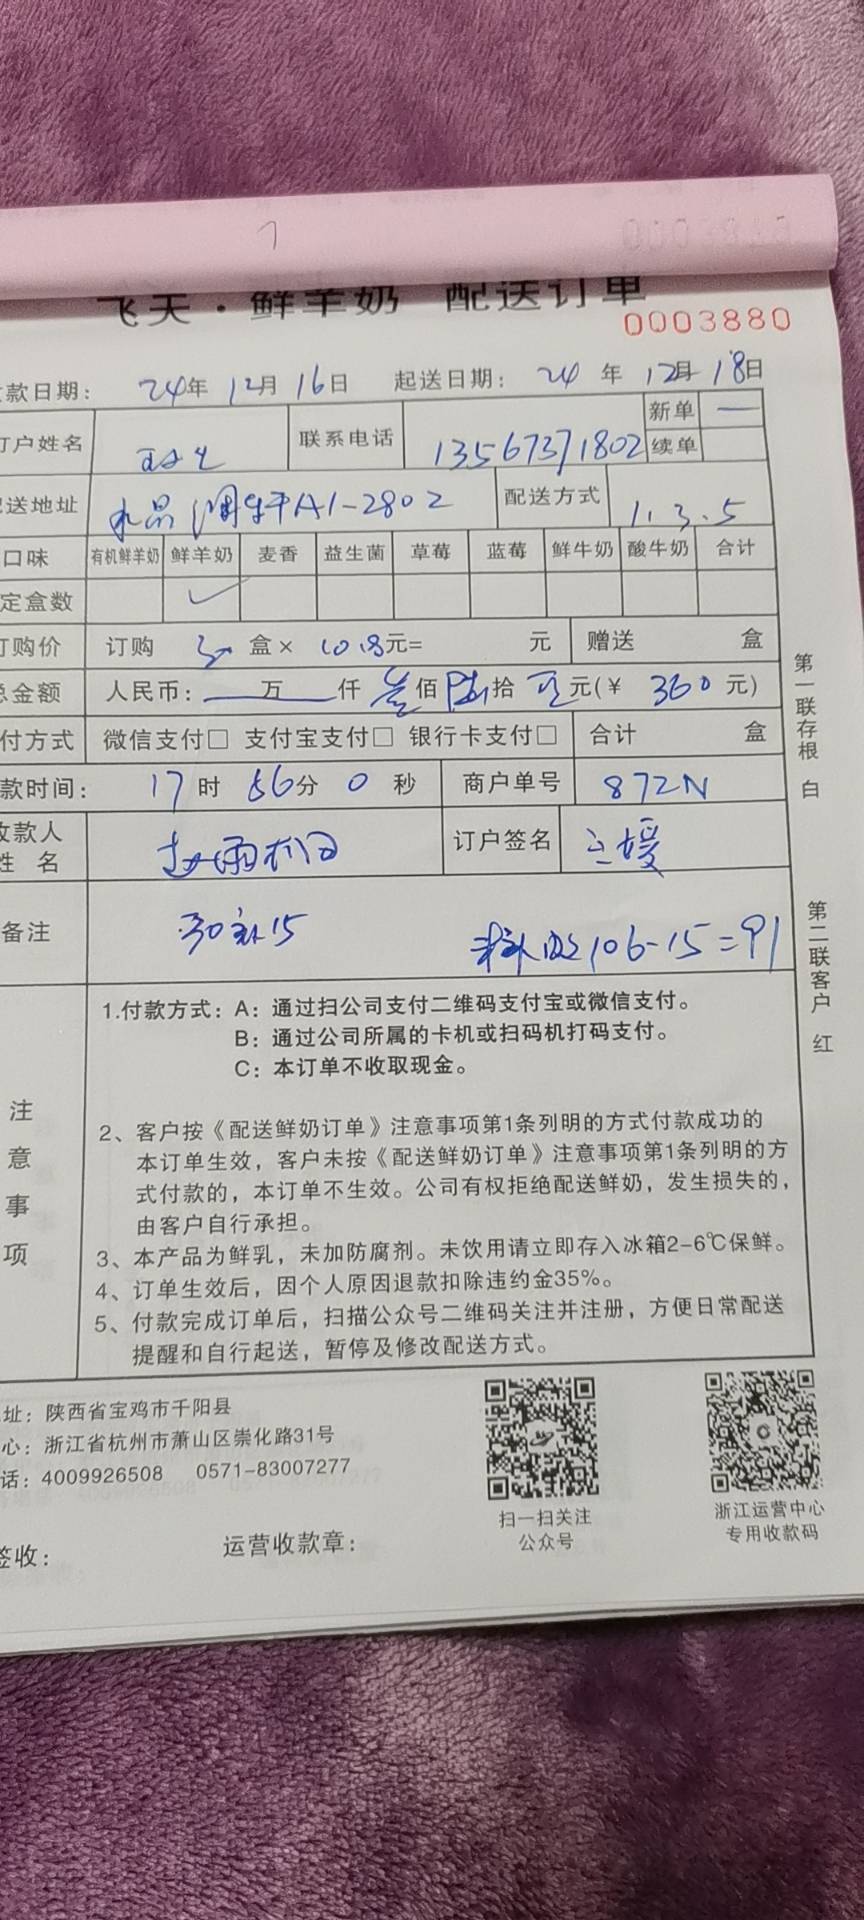 飞天·鲜羊奶 配送订单
0003880
款日期: 24年12月16日 起送日期: 24年12月18日
订户姓名 联系电话 13567371802 新单 一
续单
送地址 水晶澜轩A1-2802 配送方式 1.3.5
口味 有机鲜羊奶 鲜羊奶 麦香 益生菌 草莓 蓝莓 鲜牛奶 酸牛奶 合计
定盒数 ✓
订购价 订购 盒× 10.8元= 元 赠送 盒
总金额 人民币: 万 仟 叁佰陆拾 元(￥ 360 元)
付方式 微信支付□ 支付宝支付□ 银行卡支付□ 合计 盒
款时间: 17时56分0秒 商户单号 872N
收款人
姓 名 订户签名
备注 106-15=91
注意事项
1.付款方式: A: 通过扫公司支付二维码支付宝或微信支付。
B: 通过公司所属的卡机或扫码机打码支付。
C: 本订单不收取现金。
2、客户按《配送鲜奶订单》注意事项第1条列明的方式付款成功的
本订单生效，客户未按《配送鲜奶订单》注意事项第1条列明的方
式付款的，本订单不生效。公司有权拒绝配送鲜奶，发生损失的，
由客户自行承担。
3、本产品为鲜乳，未加防腐剂。未饮用请立即存入冰箱2-6℃保鲜。
4、订单生效后，因个人原因退款扣除违约金35%。
5、付款完成订单后，扫描公众号二维码关注并注册，方便日常配送
提醒和自行起送，暂停及修改配送方式。
第一联存根 白
第二联客户 红
址: 陕西省宝鸡市千阳县
心: 浙江省杭州市萧山区崇化路31号
话: 4009926508 0571-83007277
扫一扫关注
公众号
浙江运营中心
专用收款码
签收: 运营收款章: